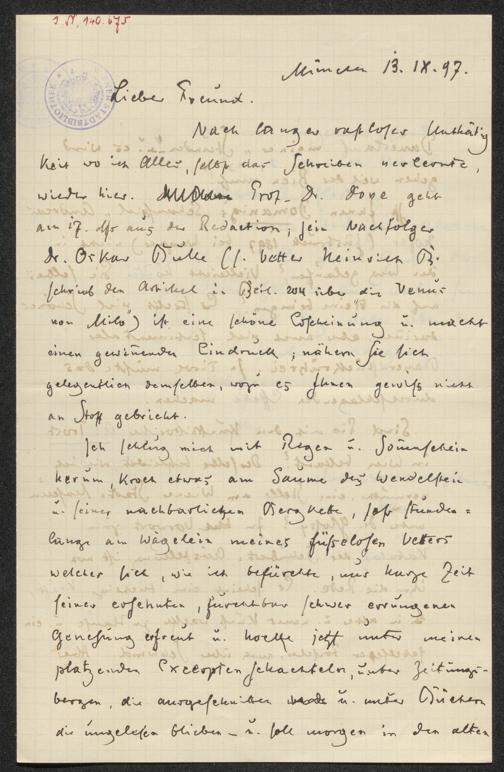 I. N. 140.675
München 13. IX. 97.
Lieber Freund.
Nach langer rastloser Unthätig
keit wo ich Alles, selbst das Schreiben verlernte,
wieder hier. Prof. Dr. Dove geht
am 17. aus der Redaction; sein Nachfolger
Dr. Oskar Bulle (s. Vetter Heinrich B.
schrieb den Artikel in Beil. 204 über die Venus
von Milo") ist eine schöne Erscheinung u. macht
einen gewinnenden Eindruck; nähern Sie sich
gelegentlich demselben, wozu es Ihnen gewiss nicht
an Stoff gebricht.
Ich schlug mich mit Regen u. Sonnenschein
herum, kroch etwas am Saume des Wendelstein
u. seiner nachbarlichen Bergkette, sass stunden=
lange am Wägelein meines füsselosen Vetters
welcher sich, wie ich befürchte, nur kurze Zeit
seiner ersehnten, furchtbar schwer errungenen
Genesung erfreut u. hocke jetzt unter meinen
platzenden Excerptenschachteln, unter Zeitungs-
bergen, die ausgeschnitten u. unter Büchern
die ungelesen blieben – u. soll morgen in den alten